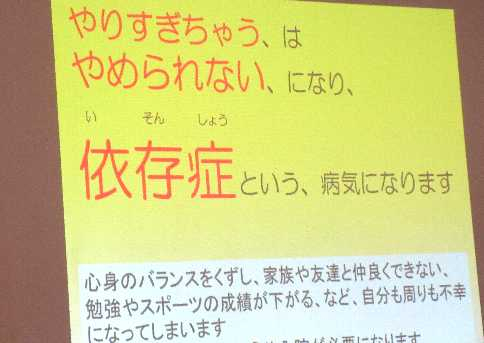 やりすぎちゃう、は
やめられない、になり、
い そん しょう
依存症という、病気になります
心身のバランスをくずし、家族や友達と仲良くできない、
勉強やスポーツの成績が下がる、など、自分も周りも不幸
になってしまいます
が必要になります